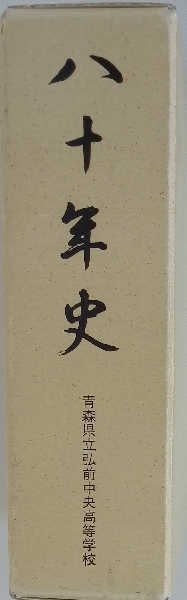 八十年史
青森県立弘前中央高等学校